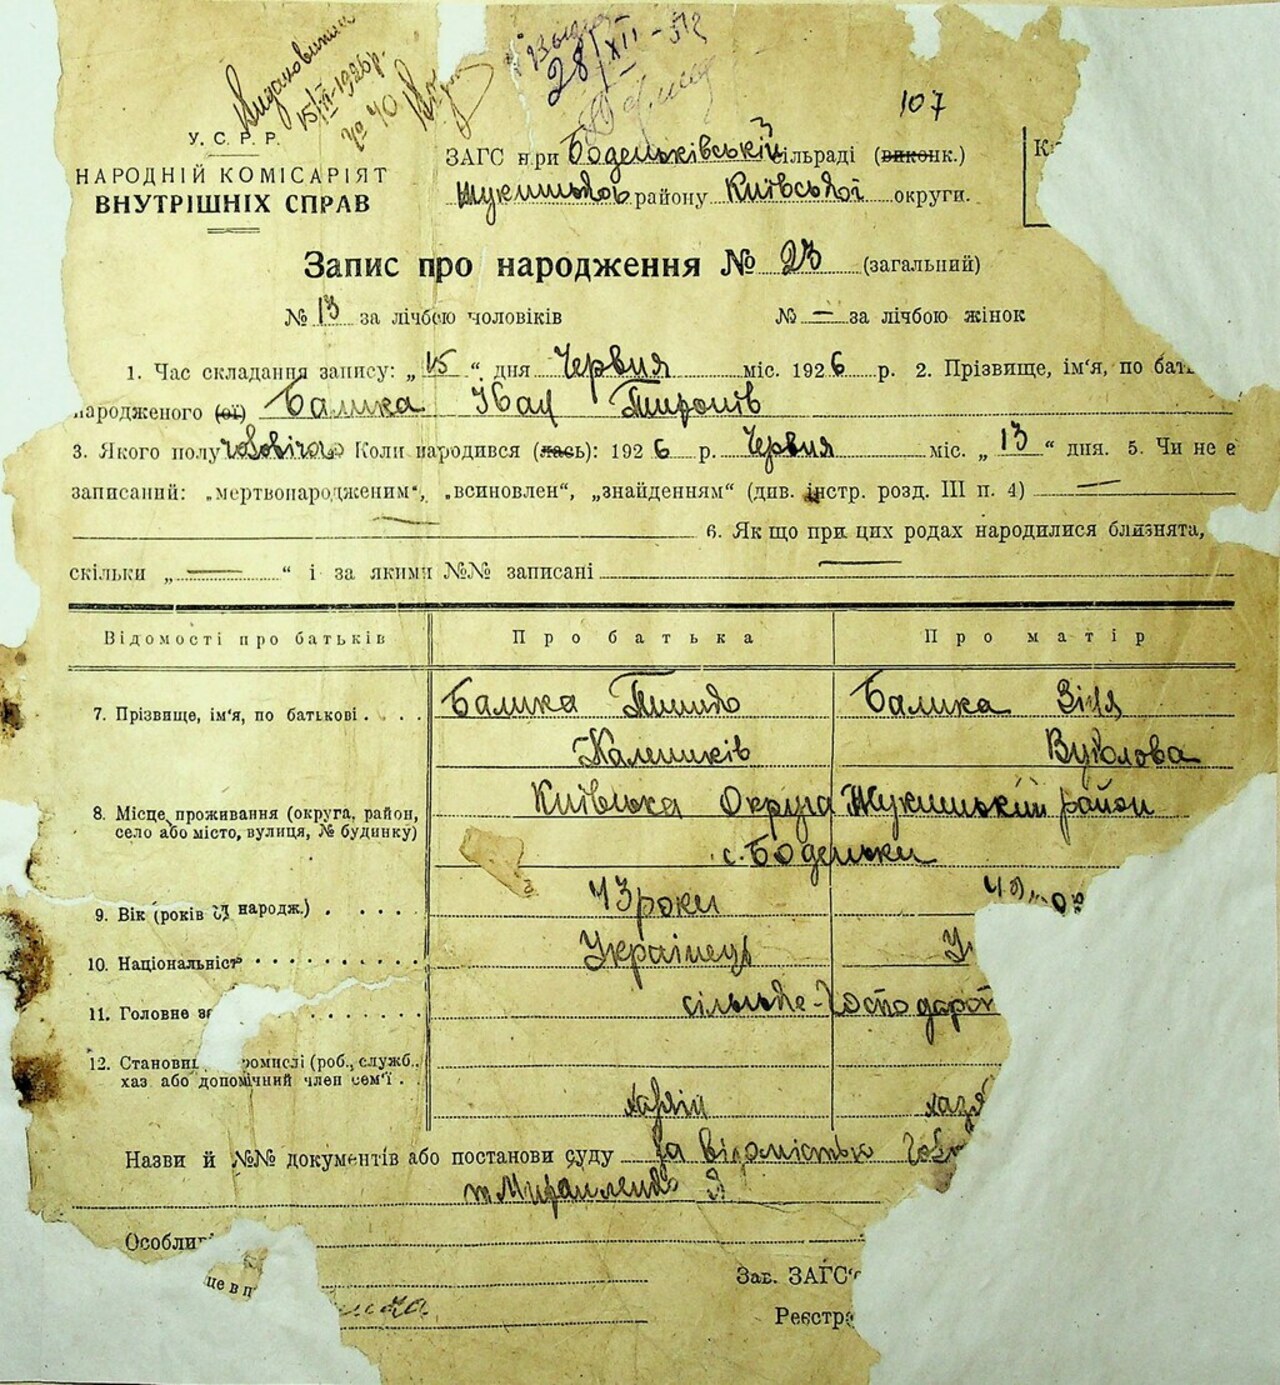 15/VI-1926 р.
№ 40
28/XII-52
107
У. С. Р. Р.
НАРОДНІЙ КОМІСАРІЯТ
ВНУТРІШНІХ СПРАВ
ЗАГС при Боденьківській сільраді (виконк.)
району Київської округи.
Запис про народження № 23 (загальний)
№ 13 за лічбою чоловіків № — за лічбою жінок
1. Час складання запису: „ 15 “ дня Червня міс. 1926 р. 2. Прізвище, ім'я, по бать
народженого (ої) Балика Іван
3. Якого полу Коли народився (лась): 1926 р. Червня міс. „ 13 “ дня. 5. Чи не є
записаний: „мертвонародженим“, „всиновлен“, „знайденням“ (див. інстр. розд. III п. 4) —
— 6. Як що при цих родах народилися близнята,
скільки „ — “ і за якими №№ записані —
Відомості про батьків Про батька Про матір
7. Прізвище, ім'я, по батькові . . . . Балика Балика
8. Місце проживання (округа, район, Київська Округа Жукинський район
село або місто, вулиця, № будинку) с. Боденьки
9. Вік (років від народж.) . . . . . 43 роки
10. Національніст . . . . . . . . . . Українець У
11. Головне за . . . . . . сільське-господарст
12. Станови ромислі (роб., служб.,
хаз або допомічний член сем'ї . . хазяїн хазя
Назви й №№ документів або постанови суду за відомістью
Особлив
це в п
Зав. ЗАГС'
Реєстра